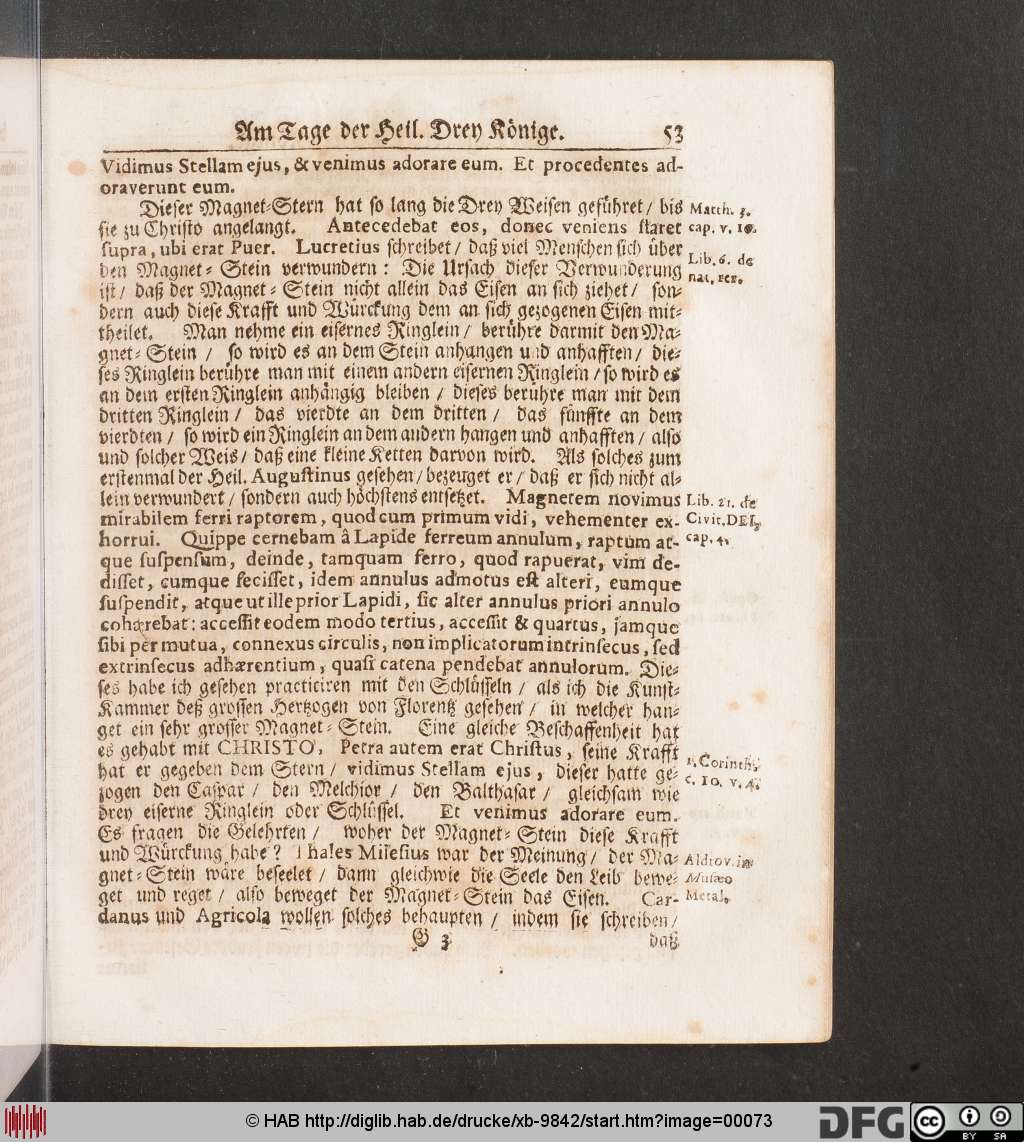 Am Tage der Heil. Drey Könige. 53
Vidimus Stellam ejus, & venimus adorare eum. Et procedentes ad-
oraverunt eum.
Dieser Magnet-Stern hat so lang die Drey Weisen geführet / bis
sie zu Christo angelangt. Antecedebat eos, donec veniens staret
supra, ubi erat Puer. Lucretius schreibet / daß viel Menschen sich über
den Magnet-Stein verwundern: Die Ursach dieser Verwunderung
ist / daß der Magnet-Stein nicht allein das Eisen an sich ziehet / son-
dern auch diese Krafft und Würckung dem an sich gezogenen Eisen mit-
theilet. Man nehme ein eisernes Ringlein / berühre darmit den Ma-
gnet-Stein / so wird es an dem Stein anhangen und anhafften / die-
ses Ringlein berühre man mit einem andern eisernen Ringlein / so wird es
an dem ersten Ringlein anhängig bleiben / dieses berühre man mit dem
dritten Ringlein / das vierdte an dem dritten / das fünffte an dem
vierdten / so wird ein Ringlein an dem andern hangen und anhafften / also
und solcher Weis / daß eine kleine Ketten darvon wird. Als solches zum
erstenmal der Heil. Augustinus gesehen / bezeuget er / daß er sich nicht al-
lein verwundert / sondern auch höchstens entsetzet. Magnetem novimus
mirabilem ferri raptorem, quod cum primum vidi, vehementer ex-
horrui. Quippe cernebam â Lapide ferreum annulum, raptum at-
que suspensum, deinde, tamquam ferro, quod rapuerat, vim de-
disset, cumque fecisset, idem annulus admotus est alteri, eumque
suspendit, atque ut ille prior Lapidi, sic alter annulus priori annulo
cohærebat: accessit eodem modo tertius, accessit & quartus, jamque
sibi per mutua, connexus circulis, non implicatorum intrinsecus, sed
extrinsecus adhærentium, quasi catena pendebat annulorum. Die-
ses habe ich gesehen practiciren mit den Schlüsseln / als ich die Kunst-
Kammer deß grossen Hertzogen von Florentz gesehen / in welcher han-
get ein sehr grosser Magnet-Stein. Eine gleiche Beschaffenheit hat
es gehabt mit CHRISTO, Petra autem erat Christus, seine Krafft
hat er gegeben dem Stern / vidimus Stellam ejus, dieser hatte ge-
zogen den Caspar / den Melchior / den Balthasar / gleichsam wie
drey eiserne Ringlein oder Schlüssel. Et venimus adorare eum.
Es fragen die Gelehrten / woher der Magnet-Stein diese Krafft
und Würckung habe? Thales Milesius war der Meinung / der Ma-
gnet-Stein wäre beseelet / dann gleichwie die Seele den Leib bewe-
get und reget / also beweget der Magnet-Stein das Eisen. Car-
danus und Agricola wollen solches behaupten / indem sie schreiben /
G 3 daß
Matth. 3.
cap. v. 10.
Lib. 6. de
nat. rer.
Lib. 21. de
Civit. DEI,
cap. 4.
1. Corinth.
c. 10. v. 4.
Aldrov. in
Musæo
Metal.
© HAB http://diglib.hab.de/drucke/xb-9842/start.htm?image=00073
DFG
cc
BY SA